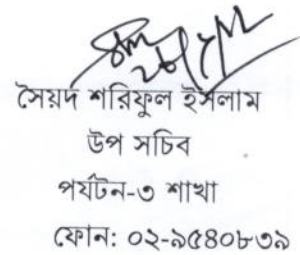 সৈয়দ শরিফুল ইসলাম
উপ সচিব
পর্যটন-৩ শাখা
ফোন: ০২-৯৫৪০৮৩৯